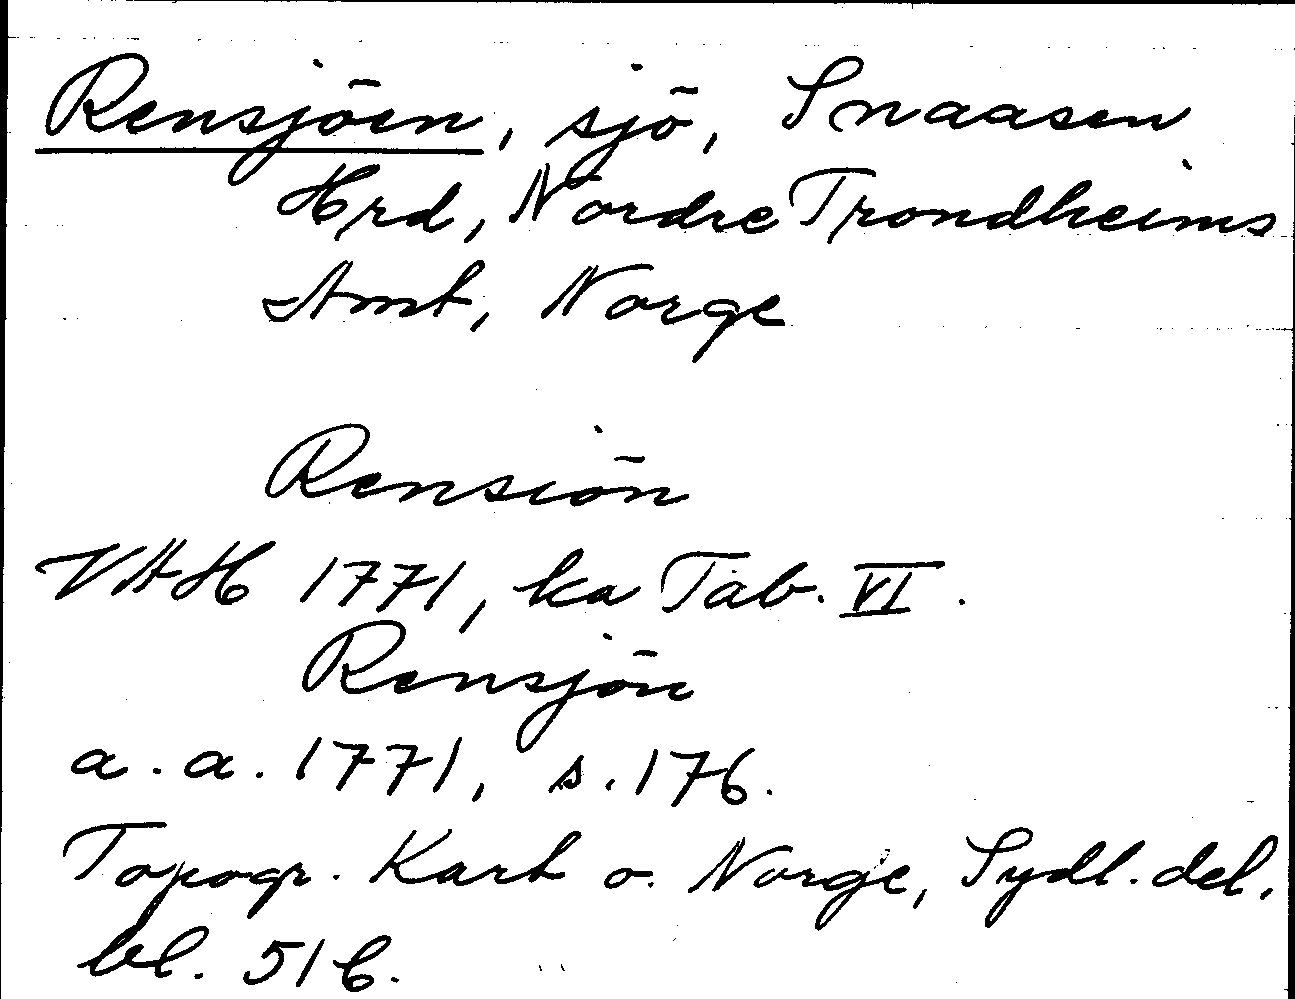 Rensjöen, sjö, Snaasen
Hrd, Nordre Trondheims
Amt, Norge
Rensiön
VAH 1771, ka Tab. VI.
Rensjön
a. a. 1771, s. 176.
Topogr. Kart o. Norge, Sydl. del.
bl. 51 b.